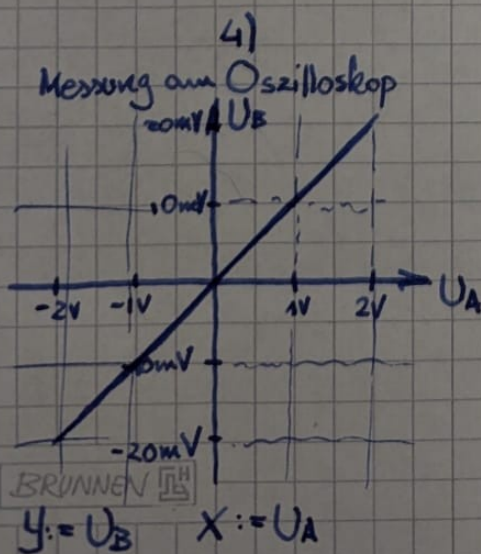 4)
Messung am Oszilloskop
20mV UB
10mV
-2V -1V 1V 2V UA
-10mV
-20mV
BRUNNEN
y:= UB x:= UA